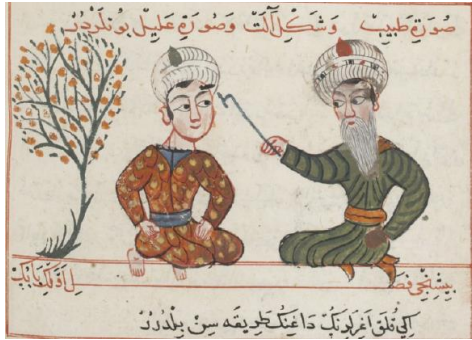 صورة طبيب وشكل آلت وصورة عليل بونلردر
بيشنجى فصل اولكى بابڭ
اكى قلق اغرلرنڭ داغنڭ طريقه سن بلدرر